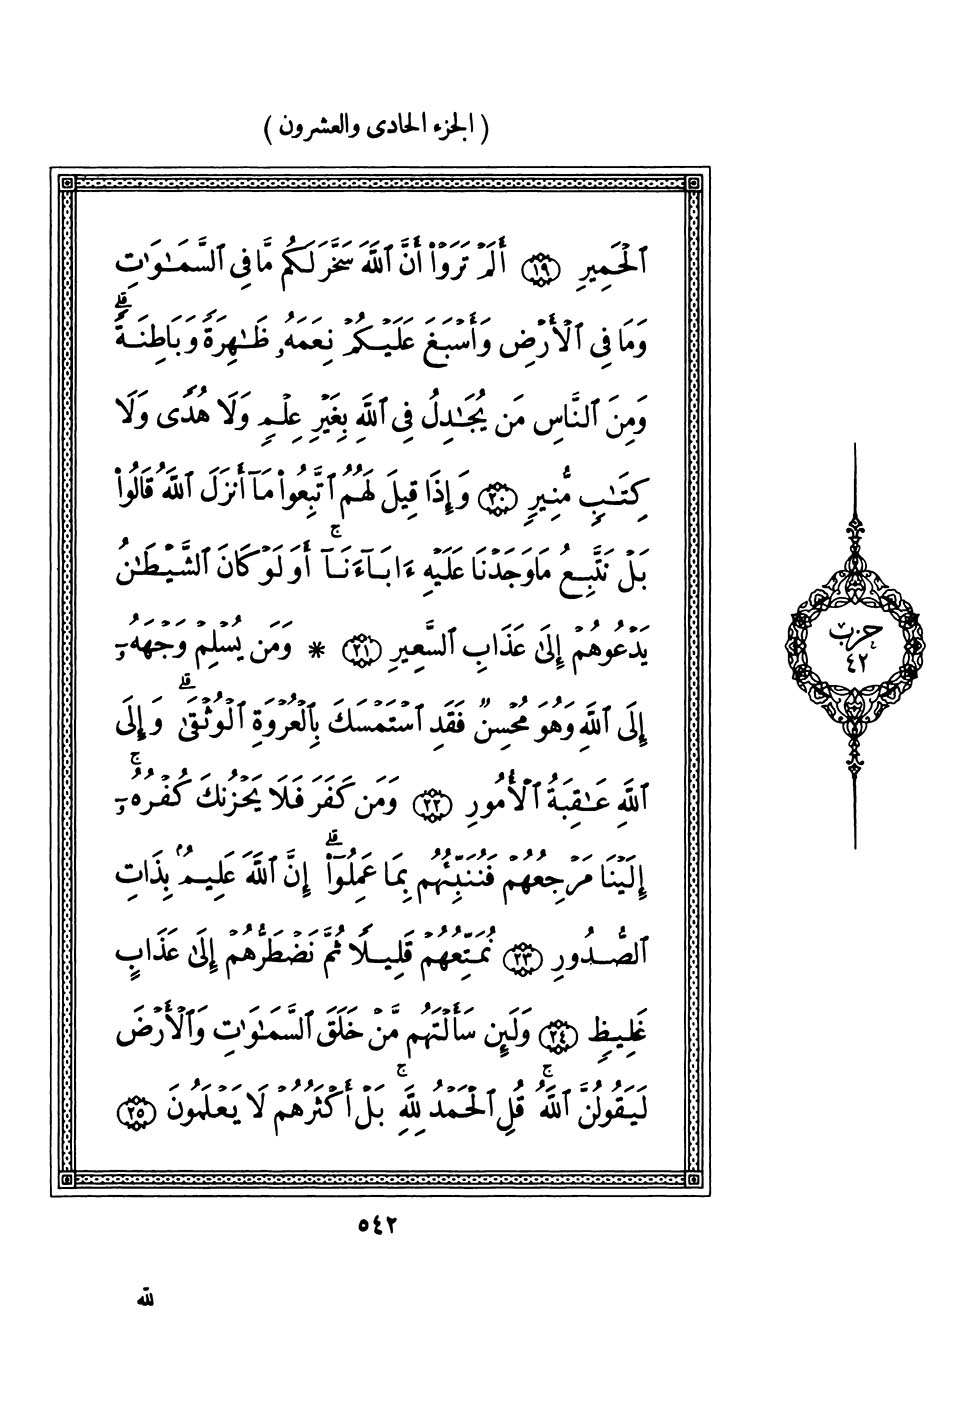 ( الجزء الحادى والعشرون )
ٱلْحَمِيرِ ١٩ أَلَمْ تَرَوْا۟ أَنَّ ٱللَّهَ سَخَّرَ لَكُم مَّا فِى ٱلسَّمَـٰوَٰتِ
وَمَا فِى ٱلْأَرْضِ وَأَسْبَغَ عَلَيْكُمْ نِعَمَهُۥ ظَـٰهِرَةً وَبَاطِنَةً ۗ
وَمِنَ ٱلنَّاسِ مَن يُجَـٰدِلُ فِى ٱللَّهِ بِغَيْرِ عِلْمٍ وَلَا هُدًى وَلَا
كِتَـٰبٍ مُّنِيرٍ ٢٠ وَإِذَا قِيلَ لَهُمُ ٱتَّبِعُوا۟ مَآ أَنزَلَ ٱللَّهُ قَالُوا۟
بَلْ نَتَّبِعُ مَا وَجَدْنَا عَلَيْهِ ءَابَآءَنَآ ۚ أَوَلَوْ كَانَ ٱلشَّيْطَـٰنُ
يَدْعُوهُمْ إِلَىٰ عَذَابِ ٱلسَّعِيرِ ٢١ * وَمَن يُسْلِمْ وَجْهَهُۥٓ
إِلَى ٱللَّهِ وَهُوَ مُحْسِنٌ فَقَدِ ٱسْتَمْسَكَ بِٱلْعُرْوَةِ ٱلْوُثْقَىٰ ۗ وَإِلَى
ٱللَّهِ عَـٰقِبَةُ ٱلْأُمُورِ ٢٢ وَمَن كَفَرَ فَلَا يَحْزُنكَ كُفْرُهُۥٓ ۚ
إِلَيْنَا مَرْجِعُهُمْ فَنُنَبِّئُهُم بِمَا عَمِلُوٓا۟ ۗ إِنَّ ٱللَّهَ عَلِيمٌۢ بِذَاتِ
ٱلصُّدُورِ ٢٣ نُمَتِّعُهُمْ قَلِيلًا ثُمَّ نَضْطَرُّهُمْ إِلَىٰ عَذَابٍ
غَلِيظٍ ٢٤ وَلَئِن سَأَلْتَهُم مَّنْ خَلَقَ ٱلسَّمَـٰوَٰتِ وَٱلْأَرْضَ
لَيَقُولُنَّ ٱللَّهُ ۚ قُلِ ٱلْحَمْدُ لِلَّهِ ۚ بَلْ أَكْثَرُهُمْ لَا يَعْلَمُونَ ٢٥
حزب
٤٢
٥٤٢
لله